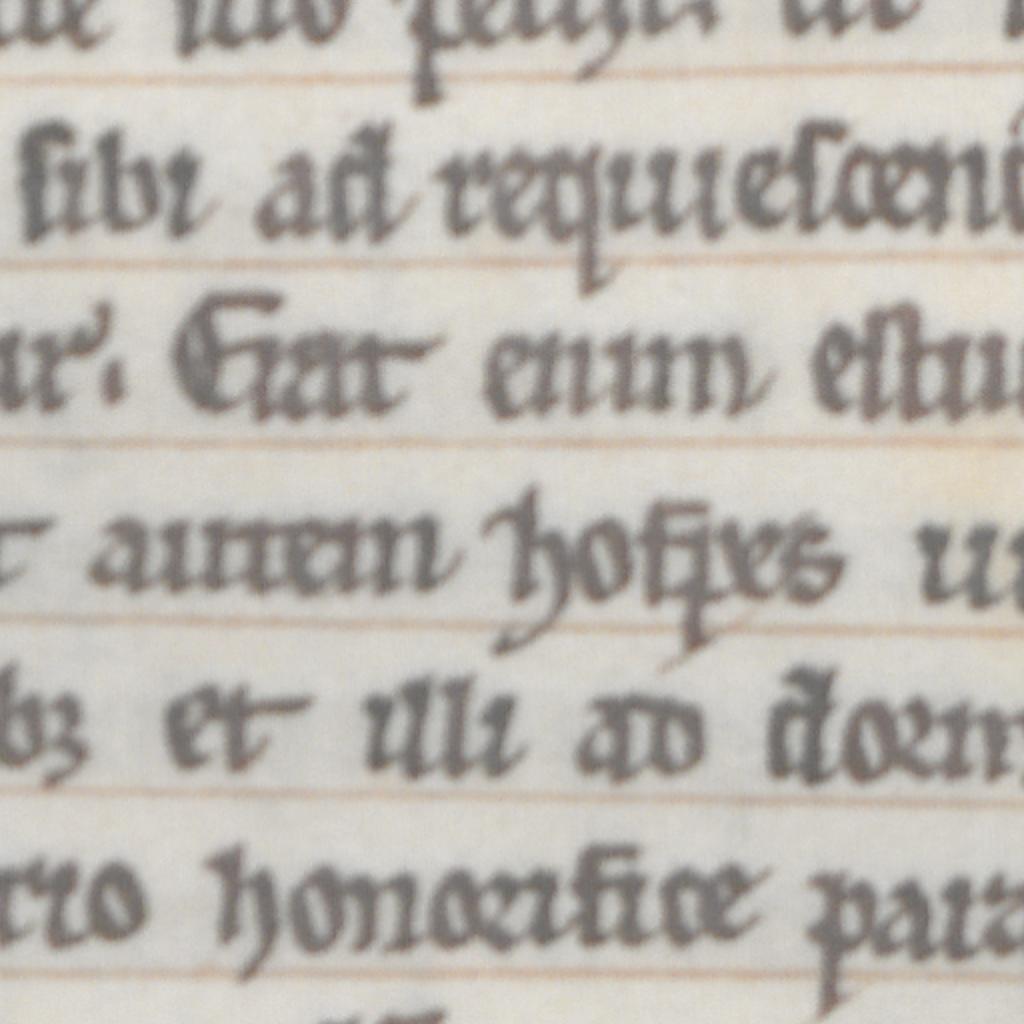 sibi ad requiescen
Erat enim estu
autem hospes
bꝫ et illi ad dorm
honorifice para